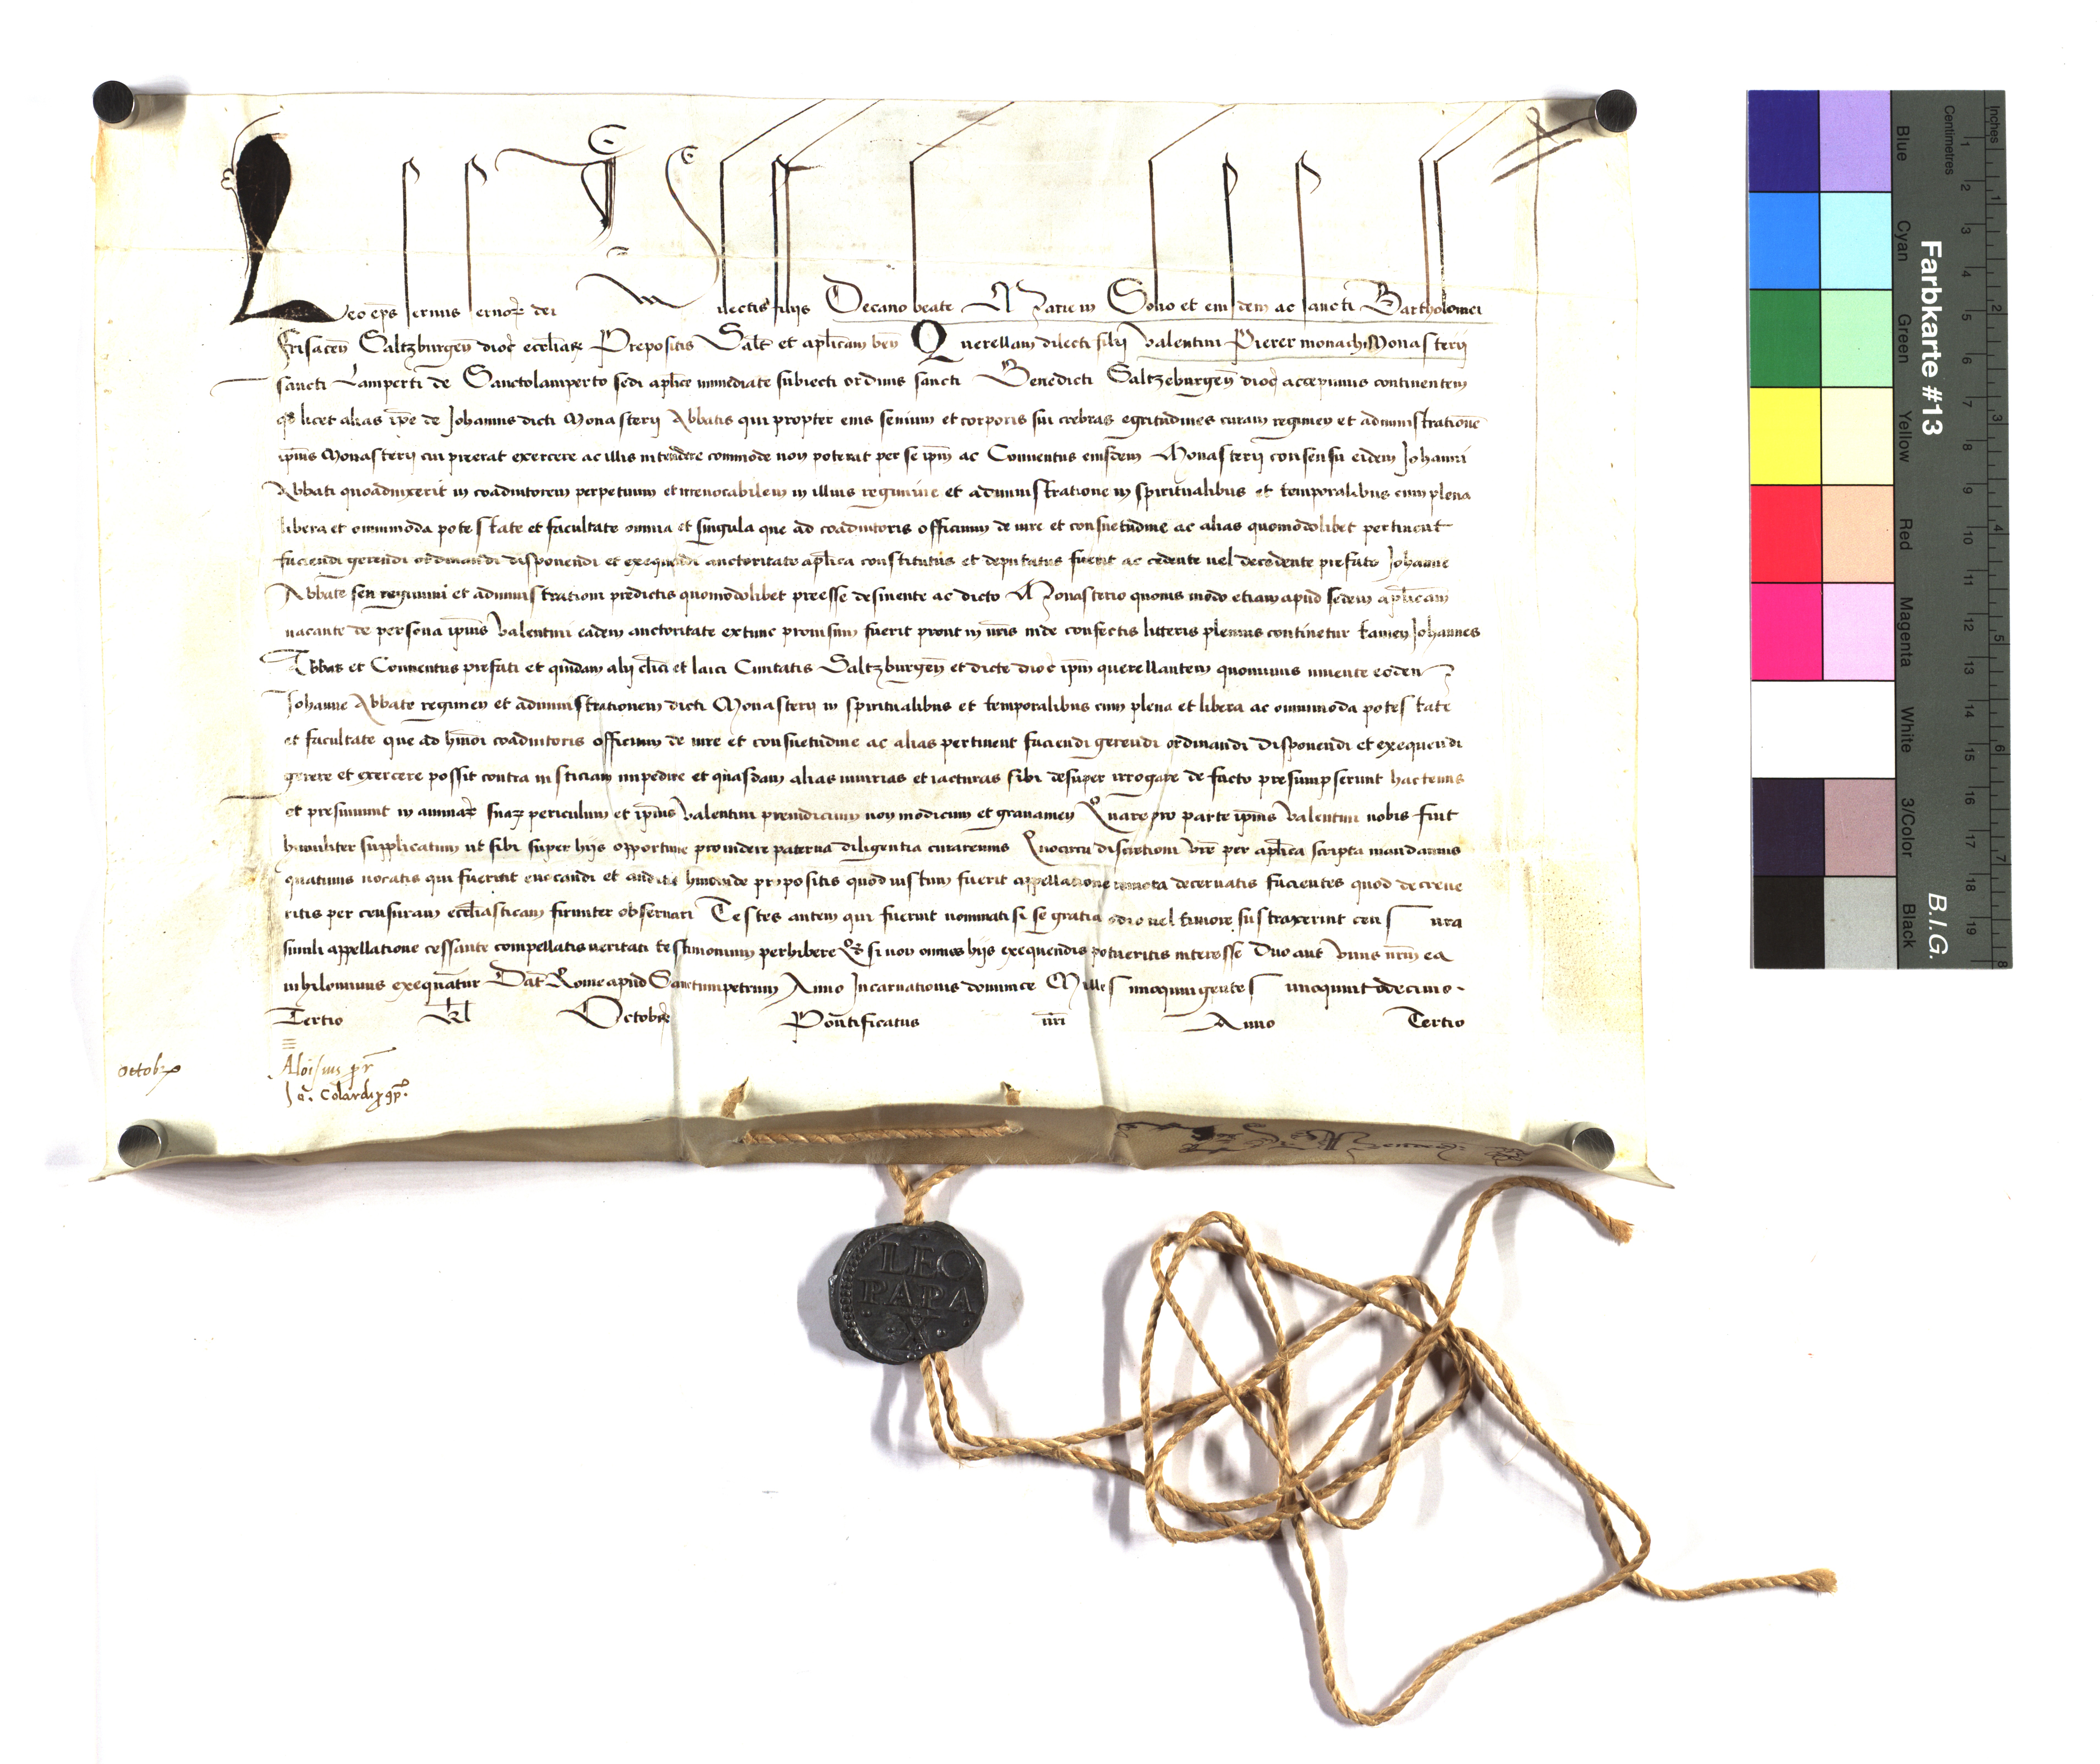 Leo ep̄s seruus seruoꝝ dei Dilectis filijs Decano beate Marie in Solio et eiusdem ac sancti Bartholomei
Frisaceñ Saltzburgeñ dioc̄ eccl̄iaꝝ Prepositis Salt̄ et apl̄icam beñ Querellam dilecti filij Valentini Pierer monachi Monasterij
sancti Lamperti de Sanctolamperto sedi apl̄ice immediate subiecti ordinis sancti Benedicti Saltzeburgeñ dioc̄ accepimus continentem
qđ licet alias ip̄e de Johannis dicti Monasterij Abbatis qui propter eius senium et corporis sui crebras egritudines curam regimen et administrationē
ip̄ius Monasterij cui preerat exercere ac illis intendere commode non poterat per se ip̄m ac Conuentus eiusdem Monasterij consensu eidem Johanni
Abbati quoaduixerit in coadiutorem perpetuum et irreuocabilem in illius regimine et administratione in spiritualibus et temporalibus cum plena
libera et omnimoda potestate et facultate omnia et singula que ad coadiutoris officium de iure et consuetudine ac alias quomodolibet pertinent
faciendi gerendi ordinandi disponendi et exequendi auctoritate apl̄ica constitutus et deputatus fuerit ac cedente uel decedente prefato Johanne
Abbate seu regimini et administrationi predictis quomodolibet preesse desinente ac dicto Monasterio quouis modo etiam apud sedem apl̄icam
uacante de persona ip̄ius Valentini eadem auctoritate extunc prouisum fuerit prout in nr̄is inde confectis litteris plenius continetur tamen Johannes
Abbas et Conuentus prefati et quidam alij cl̄ici et laici Ciuitatis Saltzburgeñ et dicte dioc̄ ip̄m querellantem quominus uiuente eodem
Johanne Abbate regimen et administrationem dicti Monasterij in spiritualibus et temporalibus cum plena et libera ac omnimoda potestate
et facultate que ad hmōi coadiutoris officium de iure et consuetudine ac alias pertinent faciendi gerendi ordinandi disponendi et exequendi
gerere et exercere possit contra iusticiam impedire et quasdam alias iniurias et iacturas sibi desuper irrogare de facto presumpserunt hactenus
et presumunt in animaꝝ suaꝝ periculum et ip̄ius Valentini preiudicium non modicum et grauamen Quare pro parte ip̄ius Valentini nobis fuit
humiliter supplicatum ut sibi super hijs opportune prouidere paterna diligentia curaremus Quocirca discretioni vr̄e per apl̄ica scripta mandamus
quatinus uocatis qui fuerint euocandi et auditis hincinde propositis quod iustum fuerit appellatione remota decernatis facientes quod decreue
ritis per censuram eccl̄iasticam firmiter obseruari Testes autem qui fuerint nominati si se gratia odio uel timore subtraxerint censura
simili appellatione cessante compellatis ueritati testimonium perhibere Qđ si non omnes hijs exequendis potueritis interesse duo aut vnus vr̄m ea
nihilominus exequātur Dat̄ Rome apud Sanctumpetrum Anno Incarnationis dominice Millesimoquingentesimoquintodecimo
Tertio Kl̄ Octobrꝭ Pontificatus nr̄i Anno Tertio
Octobꝝ
Aloisius pr̄
Ja. Colardi
LEO
PAPA
X
Farbkarte #13
B.I.G.
Inches
Centimetres
Blue
Cyan
Green
Yellow
Red
Magenta
White
3/Color
Black
1 2 3 4 5 6 7 8 9 10 11 12 13 14 15 16 17 18 19
1 2 3 4 5 6 7 8